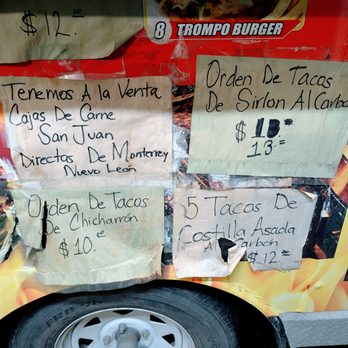 $ 12.00
8 TROMPO BURGER
Tenemos A la Venta
Cajas De Carne
San Juan
Directas De Monterrey
Nuevo León
Orden De Tacos
De Sirlon Al Carbo
$ 13.00
13.00
Orden De Tacos
De Chicharrón
$ 10.00
5 Tacos De
Costilla Asada
Al Carbón
$ 12.00